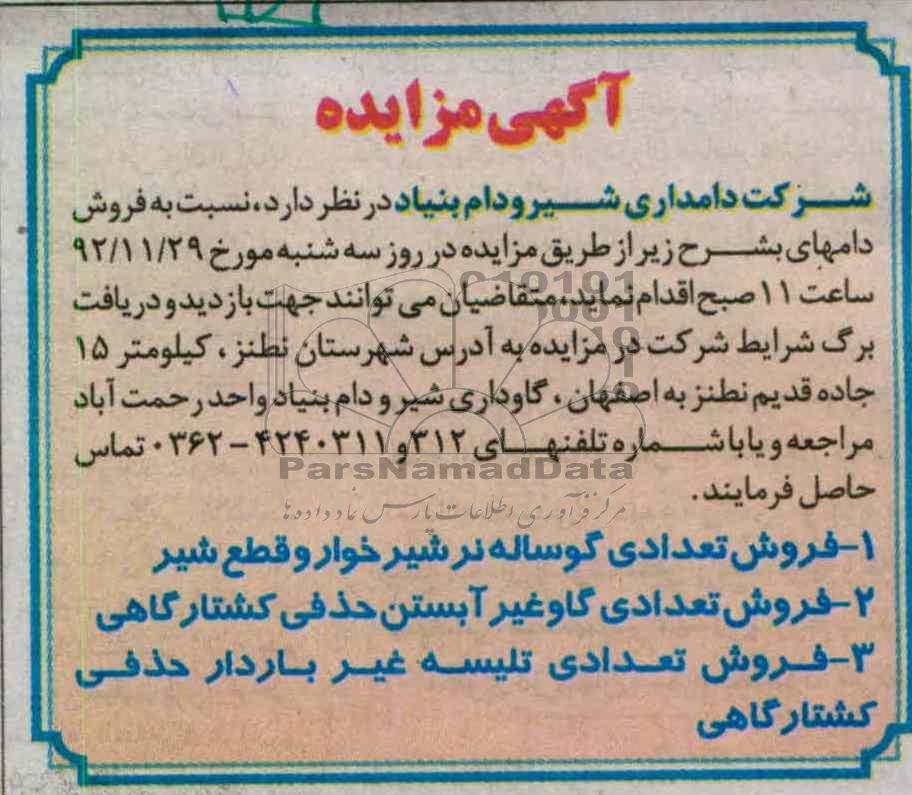 آگهی مزایده
شرکت دامداری شیر و دام بنیاد در نظر دارد، نسبت به فروش
دامهای بشرح زیر از طریق مزایده در روز سه شنبه مورخ ۹۲/۱۱/۲۹
ساعت ۱۱ صبح اقدام نماید، متقاضیان می توانند جهت بازدید و دریافت
برگ شرایط شرکت در مزایده به آدرس شهرستان نطنز ، کیلومتر ۱۵
جاده قدیم نطنز به اصفهان ، گاوداری شیر و دام بنیاد واحد رحمت آباد
مراجعه و یا با شماره تلفنهای ۳۱۲ و ۴۲۴۰۳۱۱ – ۰۳۶۲ تماس
حاصل فرمایند.
۱-فروش تعدادی گوساله نر شیر خوار و قطع شیر
۲-فروش تعدادی گاو غیر آبستن حذفی کشتارگاهی
۳-فروش تعدادی تلیسه غیر باردار حذفی
کشتارگاهی
ParsNamadData
مرکز فرآوری اطلاعات پارس نماد داده ها